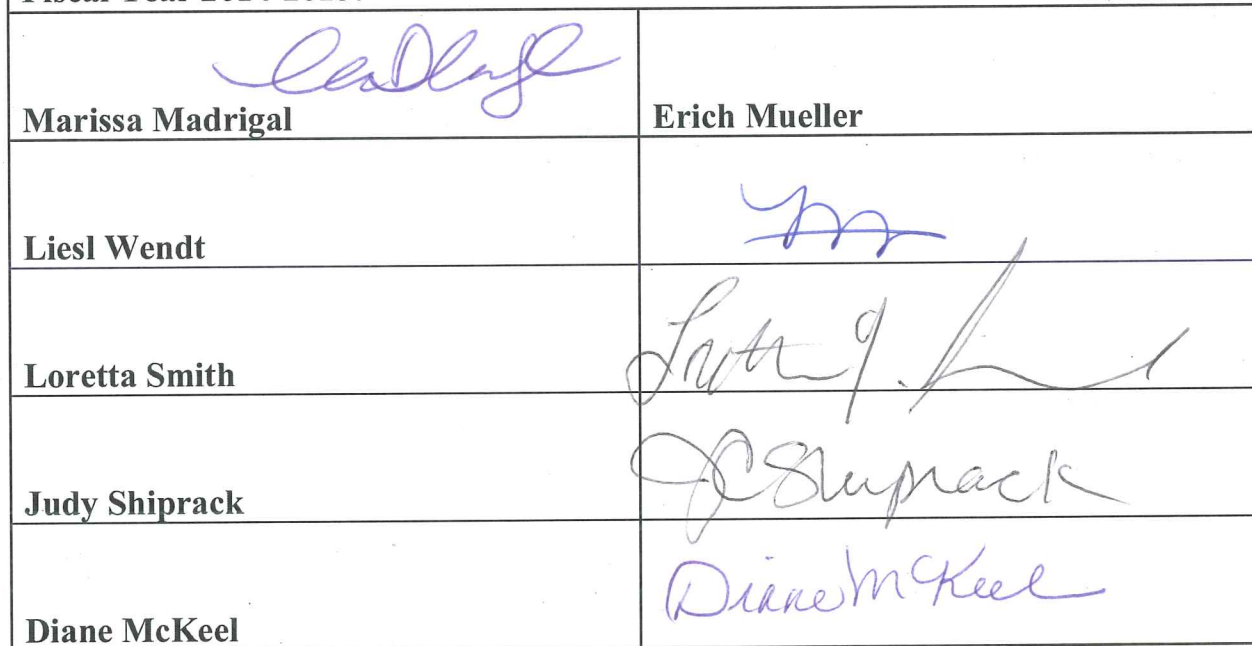 Marissa Madrigal
Erich Mueller
Liesl Wendt
Loretta Smith
Judy Shiprack
JCShiprack
Diane McKeel
Diane McKeel